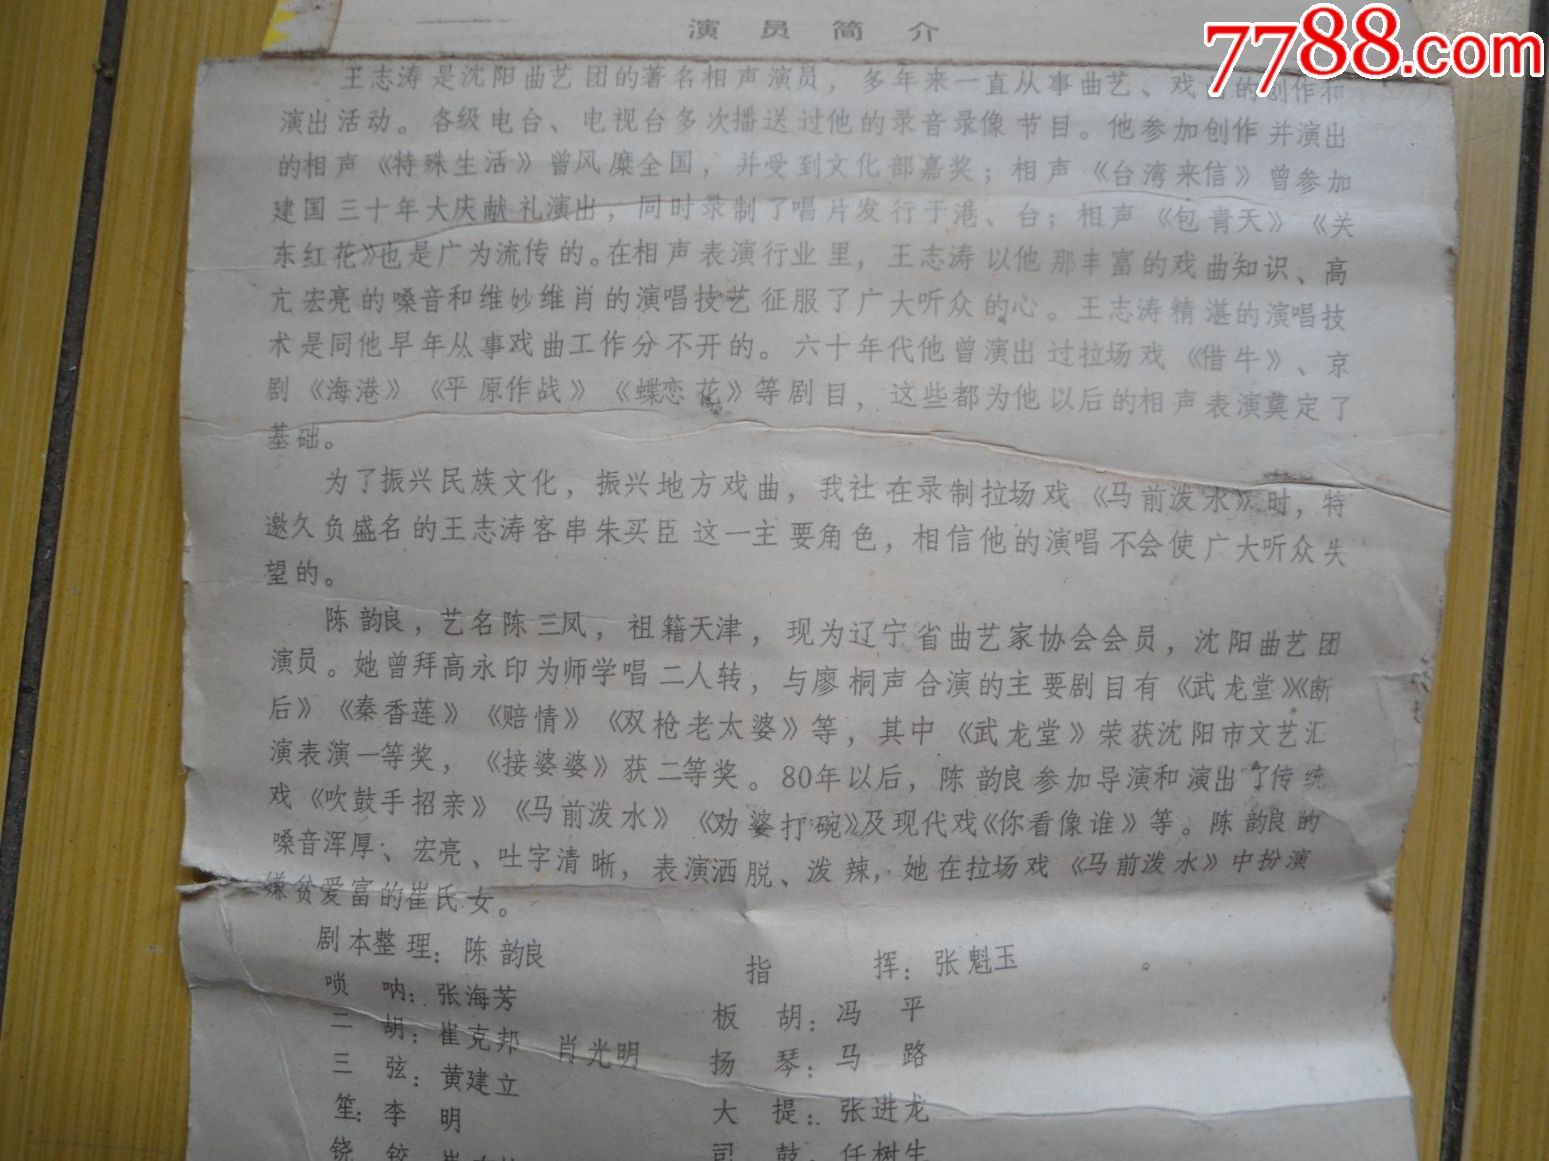 7788.com
演员简介
王志涛是沈阳曲艺团的著名相声演员，多年来一直从事曲艺、戏 的创作和
演出活动。各级电台、电视台多次播送过他的录音录像节目。他参加创作并演出
的相声《特殊生活》曾风糜全国，并受到文化部嘉奖；相声《台湾来信》曾参加
建国三十年大庆献礼演出，同时录制了唱片发行于港、台；相声《包青天》《关
东红花》也是广为流传的。在相声表演行业里，王志涛以他那丰富的戏曲知识、高
亢宏亮的嗓音和维妙维肖的演唱技艺征服了广大听众的心。王志涛精湛的演唱技
术是同他早年从事戏曲工作分不开的。六十年代他曾演出过拉场戏《借牛》、京
剧《海港》《平原作战》《蝶恋花》等剧目，这些都为他以后的相声表演奠定了
基础。
为了振兴民族文化，振兴地方戏曲，我社在录制拉场戏《马前泼水》时，特
邀久负盛名的王志涛客串朱买臣这一主要角色，相信他的演唱不会使广大听众失
望的。
陈韵良，艺名陈三凤，祖籍天津，现为辽宁省曲艺家协会会员，沈阳曲艺团
演员。她曾拜高永印为师学唱二人转，与廖桐声合演的主要剧目有《武龙堂》《断
后》《秦香莲》《赔情》《双枪老太婆》等，其中《武龙堂》荣获沈阳市文艺汇
演表演一等奖，《接婆婆》获二等奖。80年以后，陈韵良参加导演和演出了传统
戏《吹鼓手招亲》《马前泼水》《劝婆打碗》及现代戏《你看像谁》等。陈韵良的
嗓音浑厚、宏亮、吐字清晰，表演洒脱、泼辣，她在拉场戏《马前泼水》中扮演
嫌贫爱富的崔氏女。
剧本整理：陈韵良 指 挥：张魁玉
唢 呐：张海芳 板 胡：冯 平
二 胡：崔克邦 肖光明 扬 琴：马 路
三 弦：黄建立
笙：李 明 大 提：张进龙
铙 铰 司 鼓：任树生